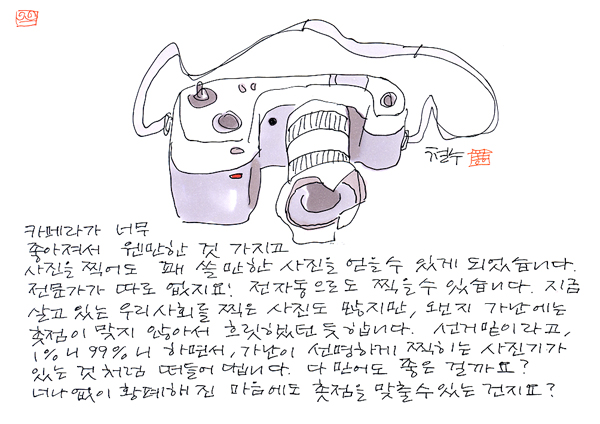 철수
카메라가 너무
좋아져서 웬만한 것 가지고
사진을 찍어도 꽤 쓸 만한 사진을 얻을 수 있게 되었습니다.
전문가가 따로 없지요! 전자동으로도 찍을 수 있습니다. 지금
살고 있는 우리사회를 찍은 사진도 많지만, 왠지 가난에는
촛점이 맞지 않아서 흐릿했던 듯합니다. 선거밑이라고,
1%니 99%니 하면서, 가난이 선명하게 찍히는 사진기가
있는 것처럼 떠들어댑니다. 다 믿어도 좋은 걸까요?
너나없이 황폐해진 마음에도 촛점을 맞출 수 있는 건지요?